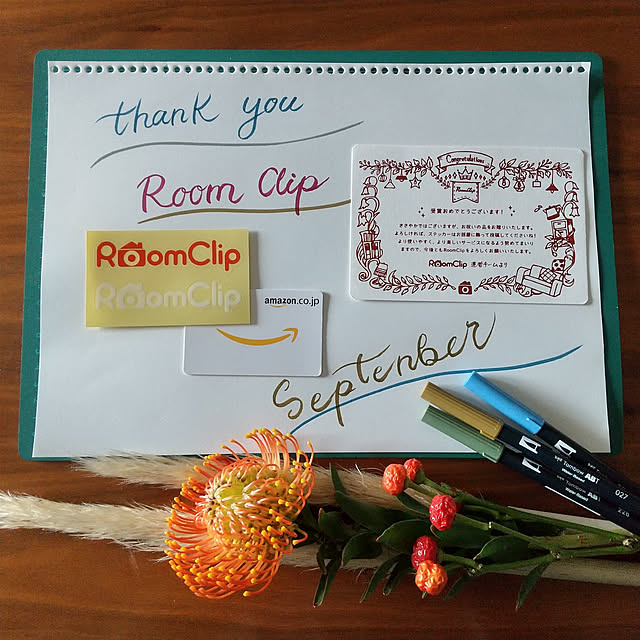 thank you
Room Clip
Congratulations
RoomClip
受賞おめでとうございます!
ささやかではございますが、お祝いの品をお贈りいたします。
よろしければ、ステッカーはお部屋に飾って投稿してくださいね!
より使いやすく、より楽しいサービスになるよう努めてまいり
ますので、今後ともRoomClipをよろしくお願いいたします。
RoomClip 運営チームより
RoomClip
RoomClip
amazon.co.jp
September
Tombow ABT
027
Tombow ABT
228